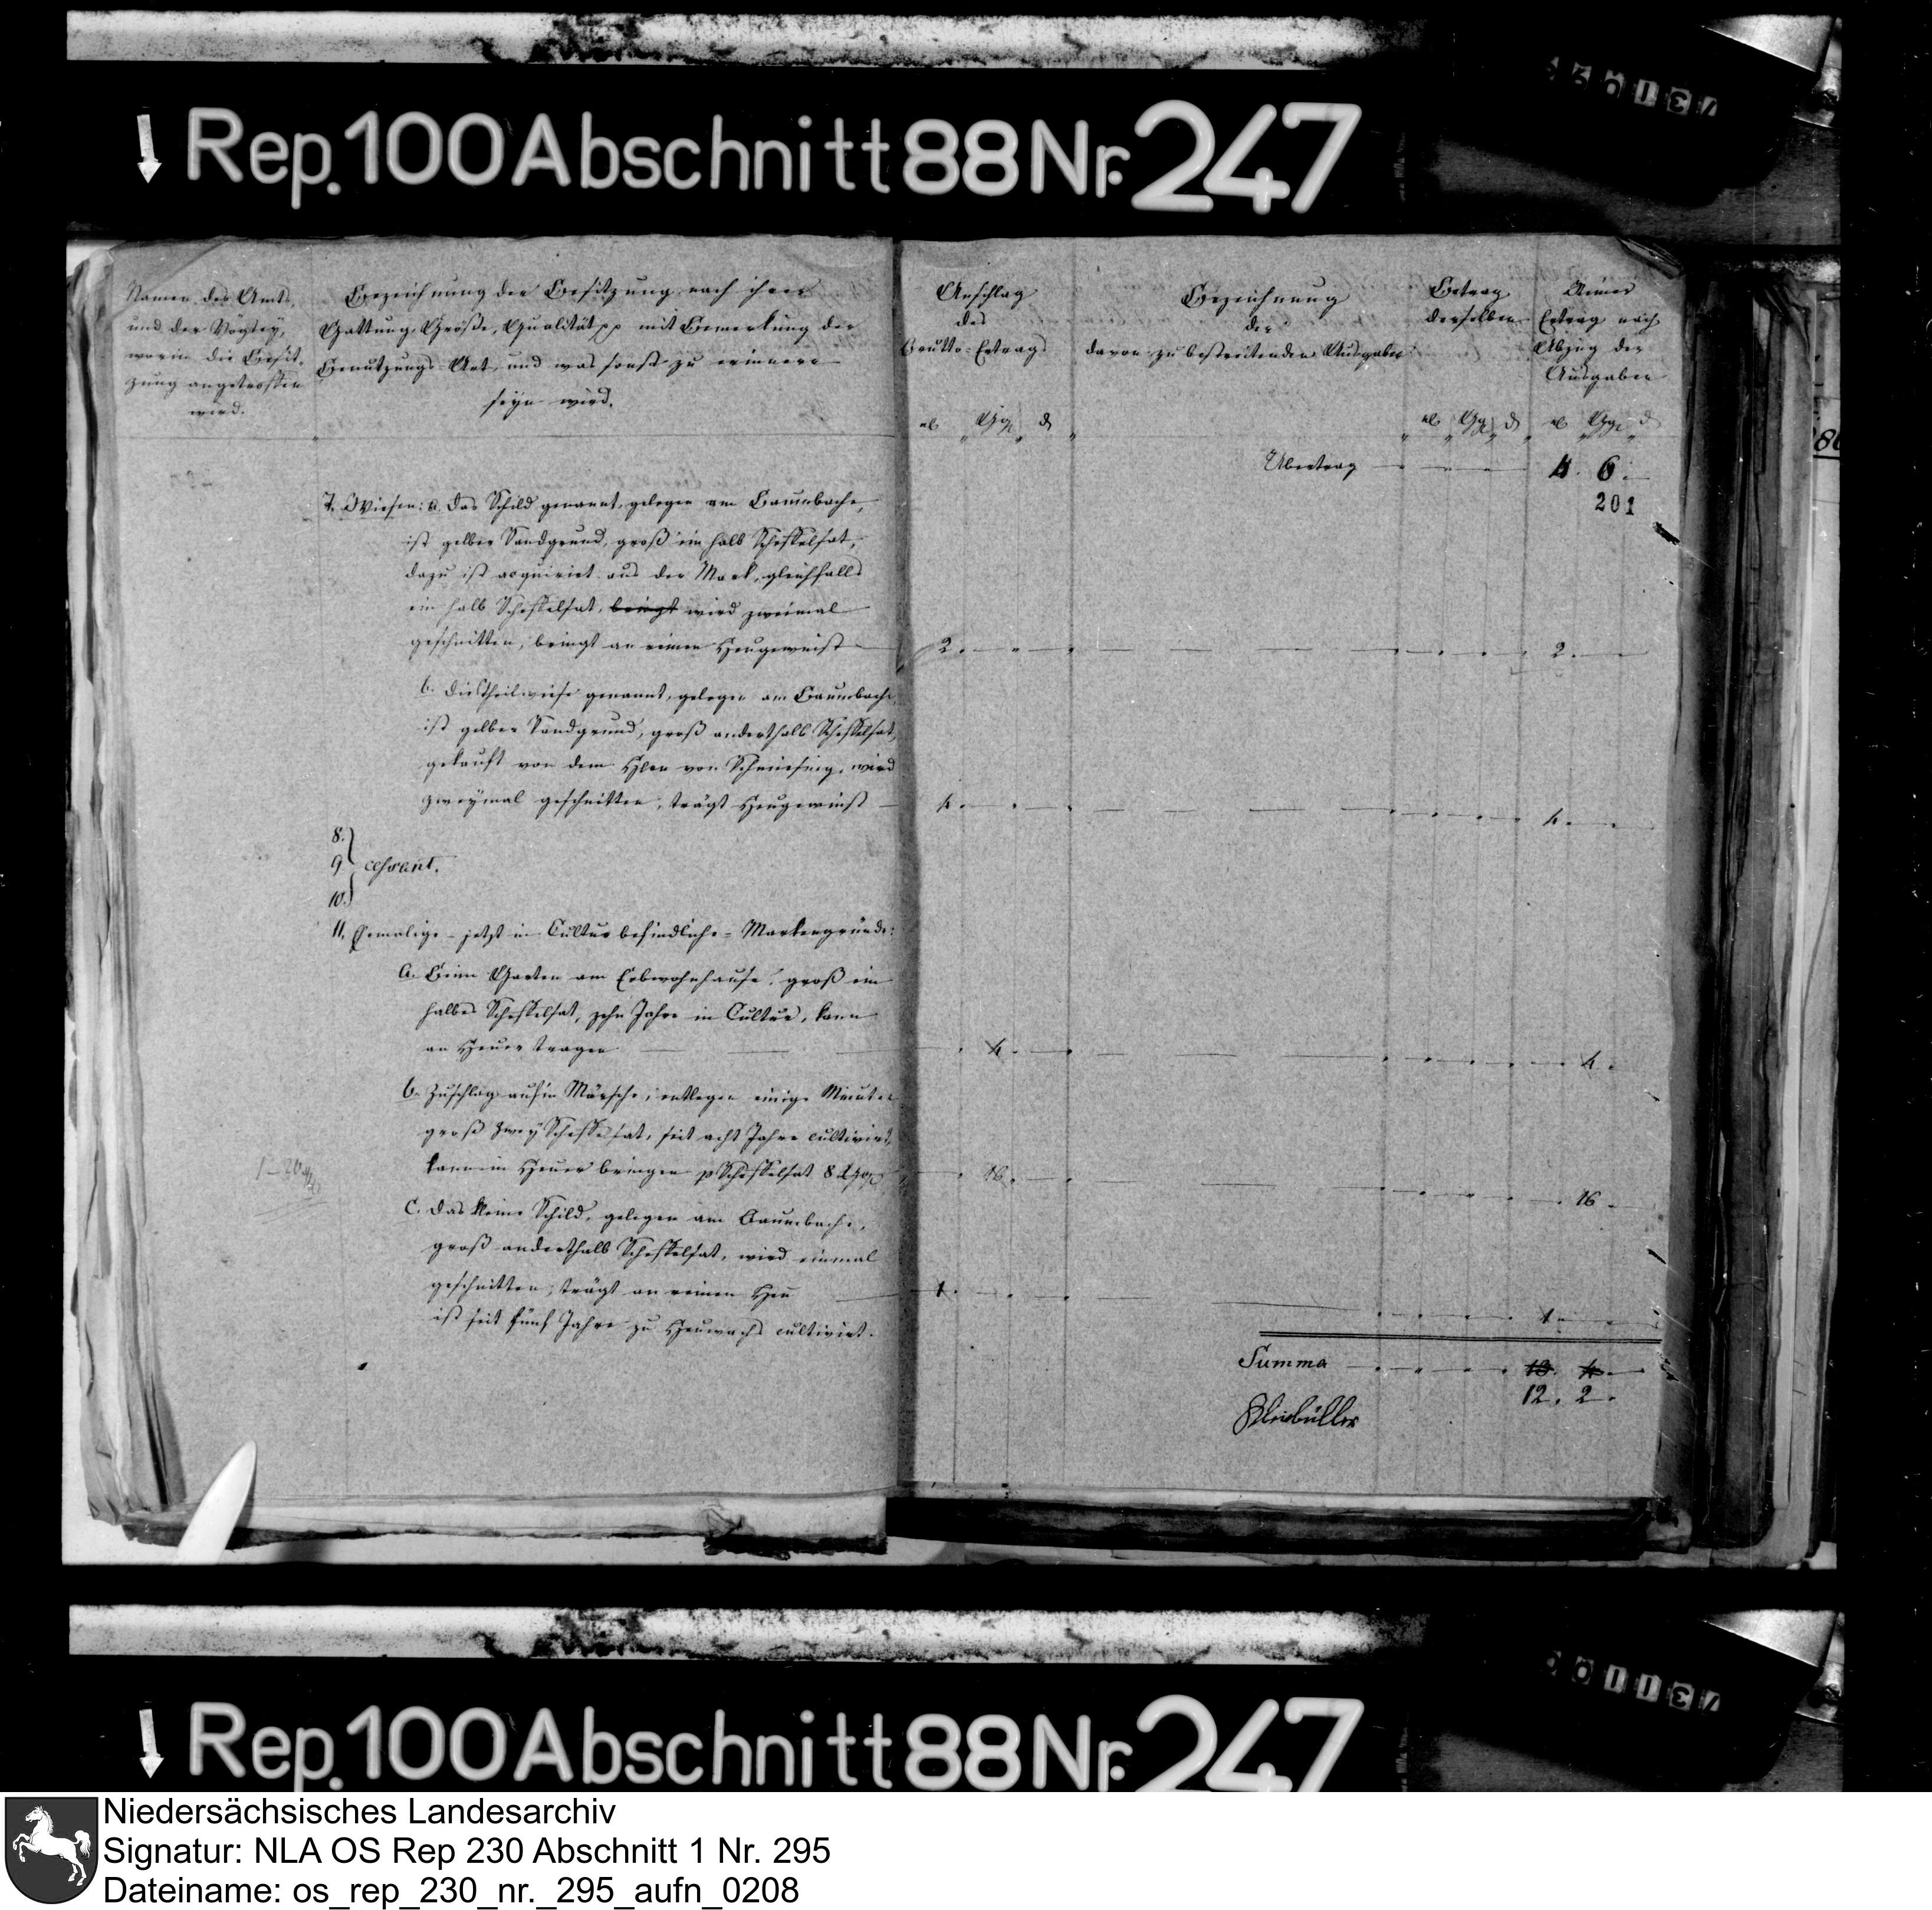 Rep. 100 Abschnitt 88 Nr. 247
Namen des Amts,
und der Vogtey,
worin die Besit-
zung angetroffen
wird.
Bezeichnung der Besitzung nach ihrer
Gattung, Größe, Qualität pp mit Bemerkung der
Benutzungs-Art, und was sonst zu erinnern
seyn wird.
Anschlag
des
Brutto-Ertrags
Bezeichnung
der
davon zu bestreitenden Ausgaben
Betrag
derselben
Reiner
Ertrag nach
Abzug der
Ausgaben
Übertrag 4. 6.
201
7. Wiesen: a. das Schild genannt, gelegen am Baumbache,
ist gelber Sandgrund, groß ein halb Scheffelsat,
dazu ist acquirirt aus der Mark, gleichfalls
ein halb Scheffelsat, bringt wird zweimal
geschnitten, bringt an reinen Heugewinst 2. 2.
b. die Theilwiese genannt, gelegen am Baumbache
ist gelber Sandgrund, groß anderthalb Scheffelsat,
gekauft von dem Hern von Schmiesing, wird
zweymal geschnitten, trägt Heugewinst 4. 4.
8.
9 cessant.
10.
11. Ehemalige - jetzt in Cultur befindliche - Markengründe:
a. Beim Garten am Erbwohnhause, groß ein
halbes Scheffelsat, zehn Jahre in Cultur, kann
an Heuer tragen 4. 4.
b. Zuschlag auf'm Märsche, entlegen einige Minuten
groß zwey Scheffelsat, seit acht Jahre cultivirt,
kann in Heuer bringen p Scheffelsat 8 Ggr 16. 16.
c. das kleine Schild, gelegen am Baumbache,
groß anderthalb Scheffelsat, wird einmal
geschnitten, trägt an reinen Heu 1. 1.
ist seit fünf Jahre zu Heuwachs cultivirt.
Summa
12. 2.
Rep. 100 Abschnitt 88 Nr. 247
Niedersächsisches Landesarchiv
Signatur: NLA OS Rep 230 Abschnitt 1 Nr. 295
Dateiname: os_rep_230_nr._295_aufn_0208